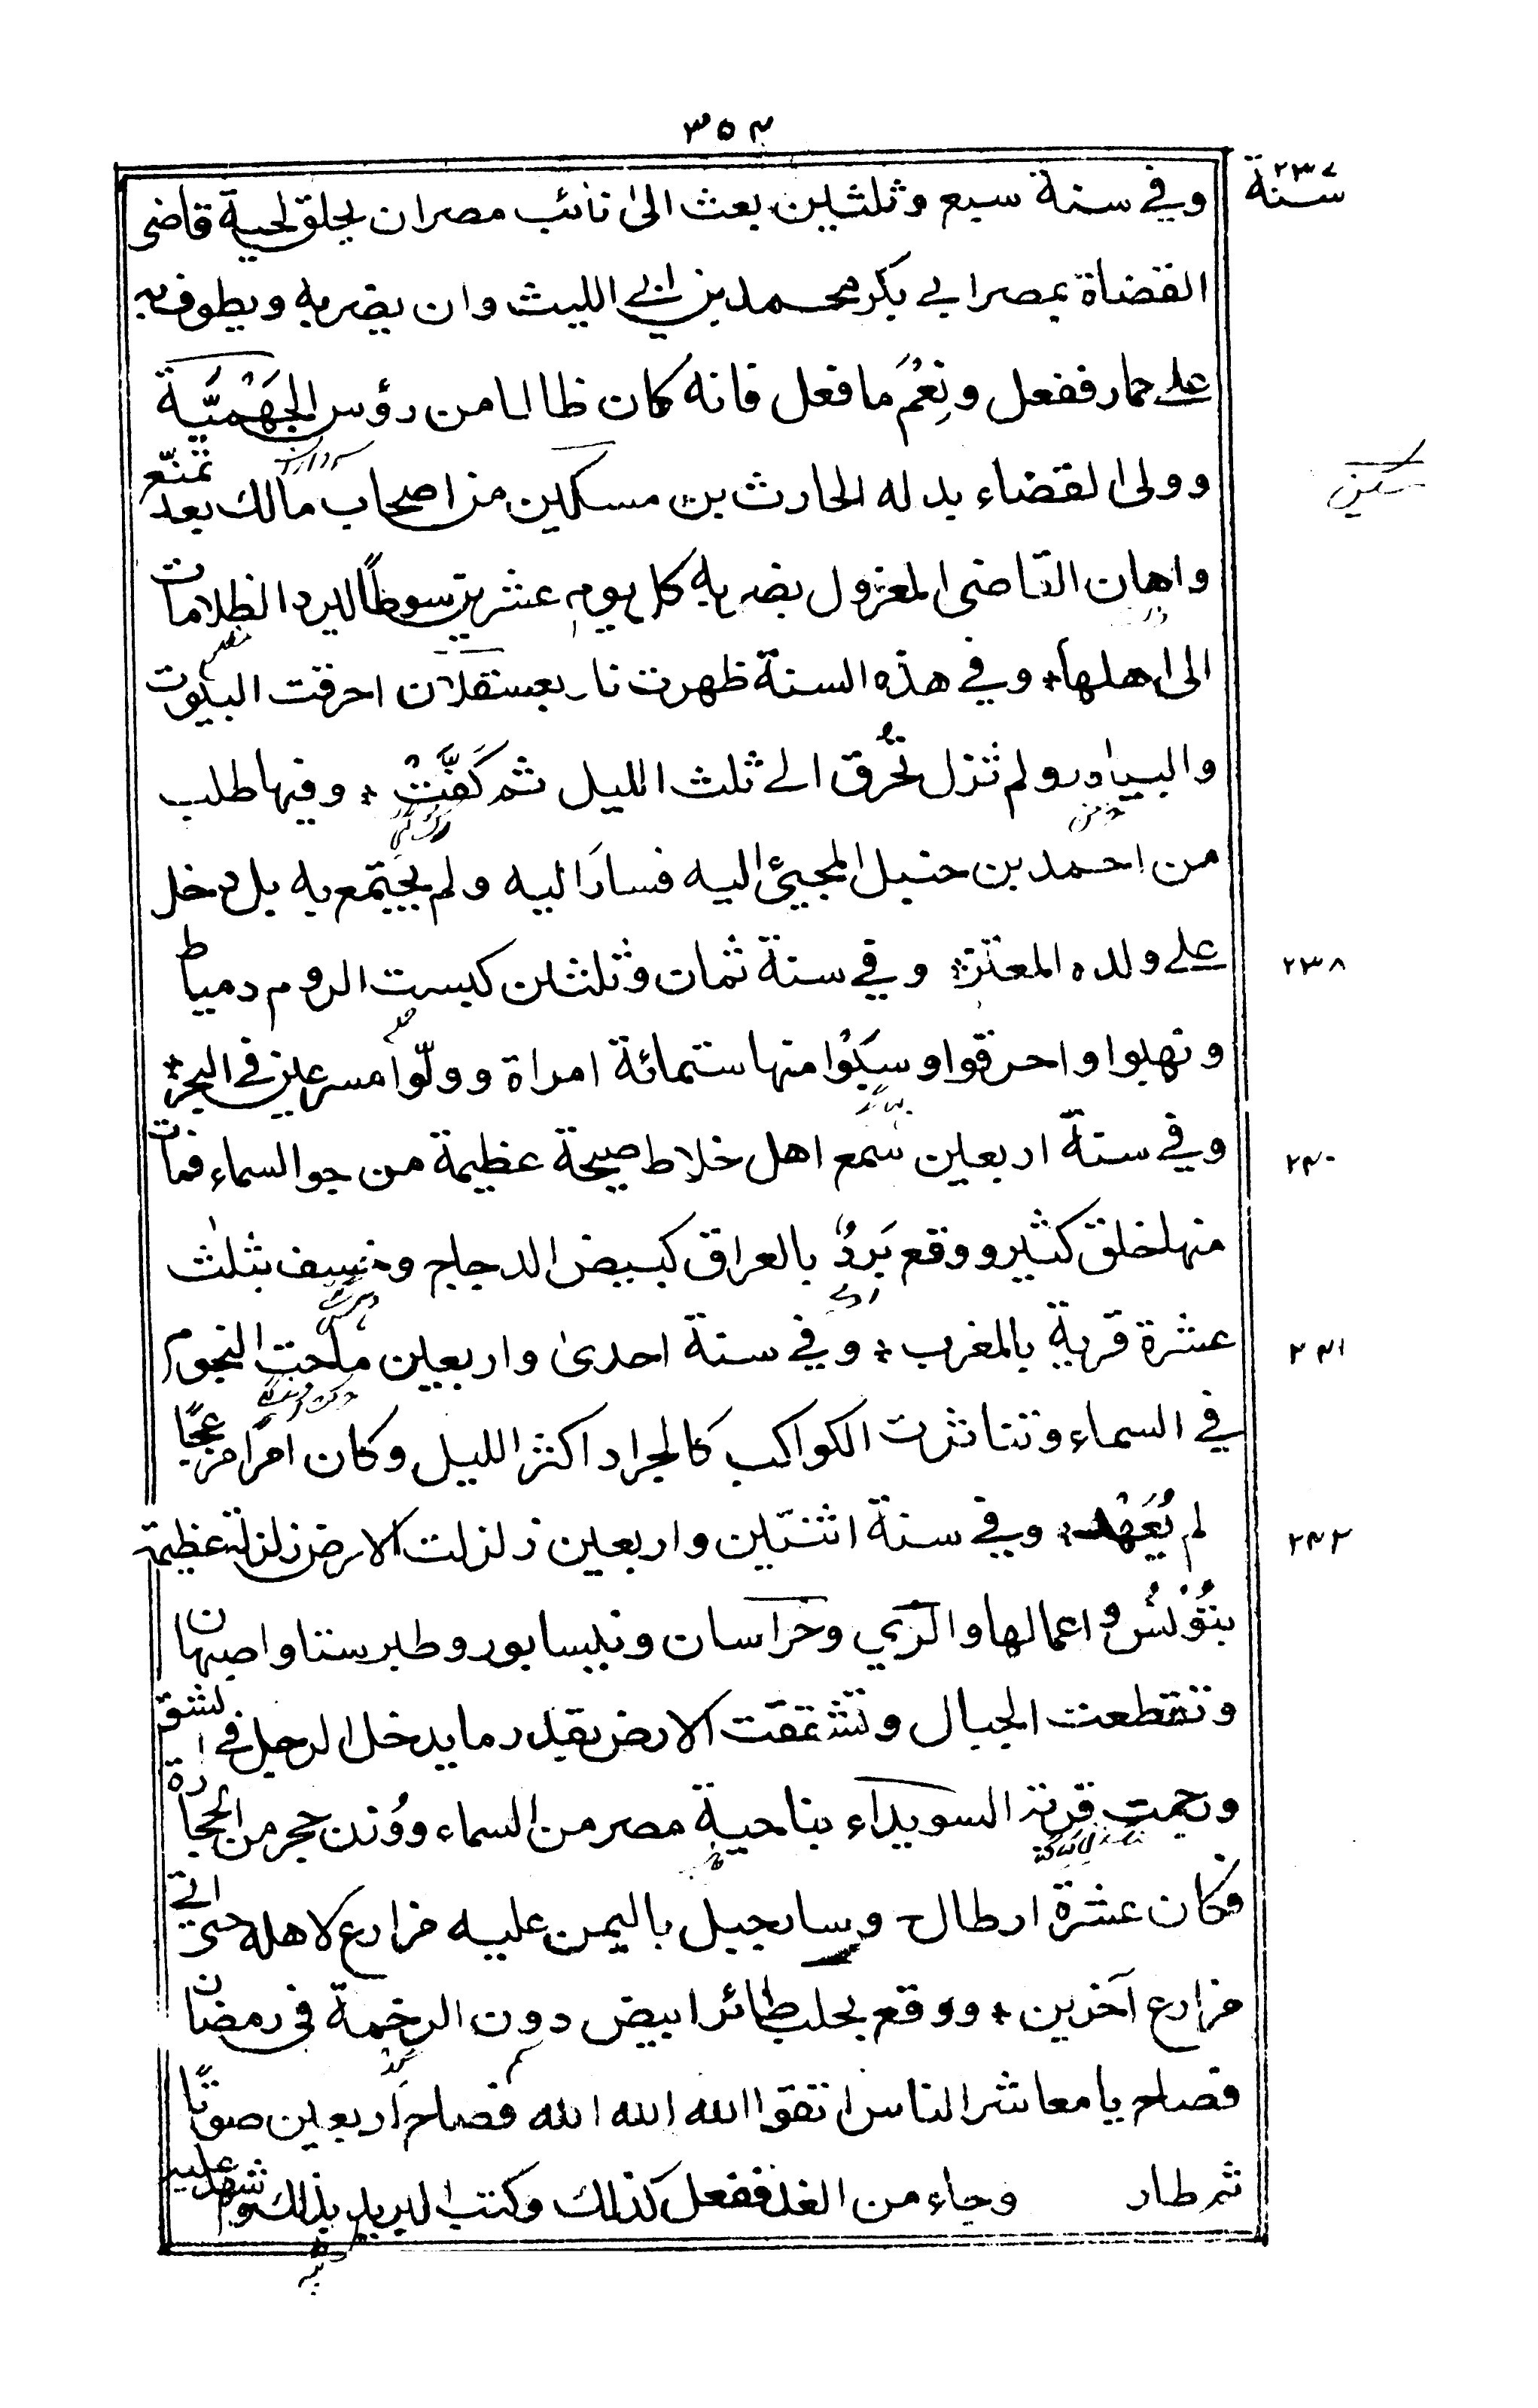 ٣٥٣
سنة ٢٣٧
وفي سنة سبع وثلثين بعث الى نائب مصر ان يحلق لحية قاضى
القضاة بمصر ابي بكر محمد بن ابي الليث وان يضربه ويطوف به
على حمار ففعل ونِعْمَ ما فعل فانه كان ظالما من رؤس الجَهْمِيَّة
وولى القضاء بدله الحارث بن مسكين من اصحاب مالك بعد تمنّع
واهان القاضى المعزول بضربه كل يوم عشرين سوطًا ليرد الظلامات
الى اهلها * وفي هذه السنة ظهرت نار بعسقلان احرقت البيوت
والبيادر ولم تزل تُحرق الى ثلث الليل ثم كَفَّتْ * وفيها طلب
من احمد بن حنبل المجيئ اليه فسارَ اليه ولم يجتمع به بل دخل
على ولده المعتز * وفي سنة ثمان وثلثين كبست الروم دمياط
٢٣٨
ونهبوا واحرقوا وسَبَوْا منها ستمائة امراة وولّوا مسرعين في البحر *
وفي سنة اربعين سمع اهل خلاط صيحة عظيمة من جو السماء فمات
٢٤٠
منها خلق كثير ووقع بَرَدٌ بالعراق كبيض الدجاج وخسف بثلث
عشرة قرية بالمغرب * وفي سنة احدى واربعين ماجت النجوم
٢٤١
في السماء وتناثرت الكواكب كالجراد اكثر الليل وكان امرًا مزعجًا
لم يُعْهَد * وفي سنة اثنتين واربعين زلزلت الارض زلزلة عظيمة
٢٤٢
بتُوْنُسُ واعمالها والرّي وخراسان ونيسابور وطبرستان واصبهان
وتقطعت الجبال وتشققت الارض بقدر ما يدخل الرجل في الشق
ورجمت قرية السويداء بناحية مصر من السماء ووُزن حجر من الحجارة
فكان عشرة ارطال وسار جبل باليمن عليه مزارع لاهله حتى اتى
مزارع آخرين * ووقع بحلب طائر ابيض دون الرخمة في رمضان
فصاح يا معاشر الناس اتقوا الله الله الله فصاح اربعين صوتًا
ثم طار وجاء من الغد ففعل كذلك وكتب البريد بذلك وشهد عليه